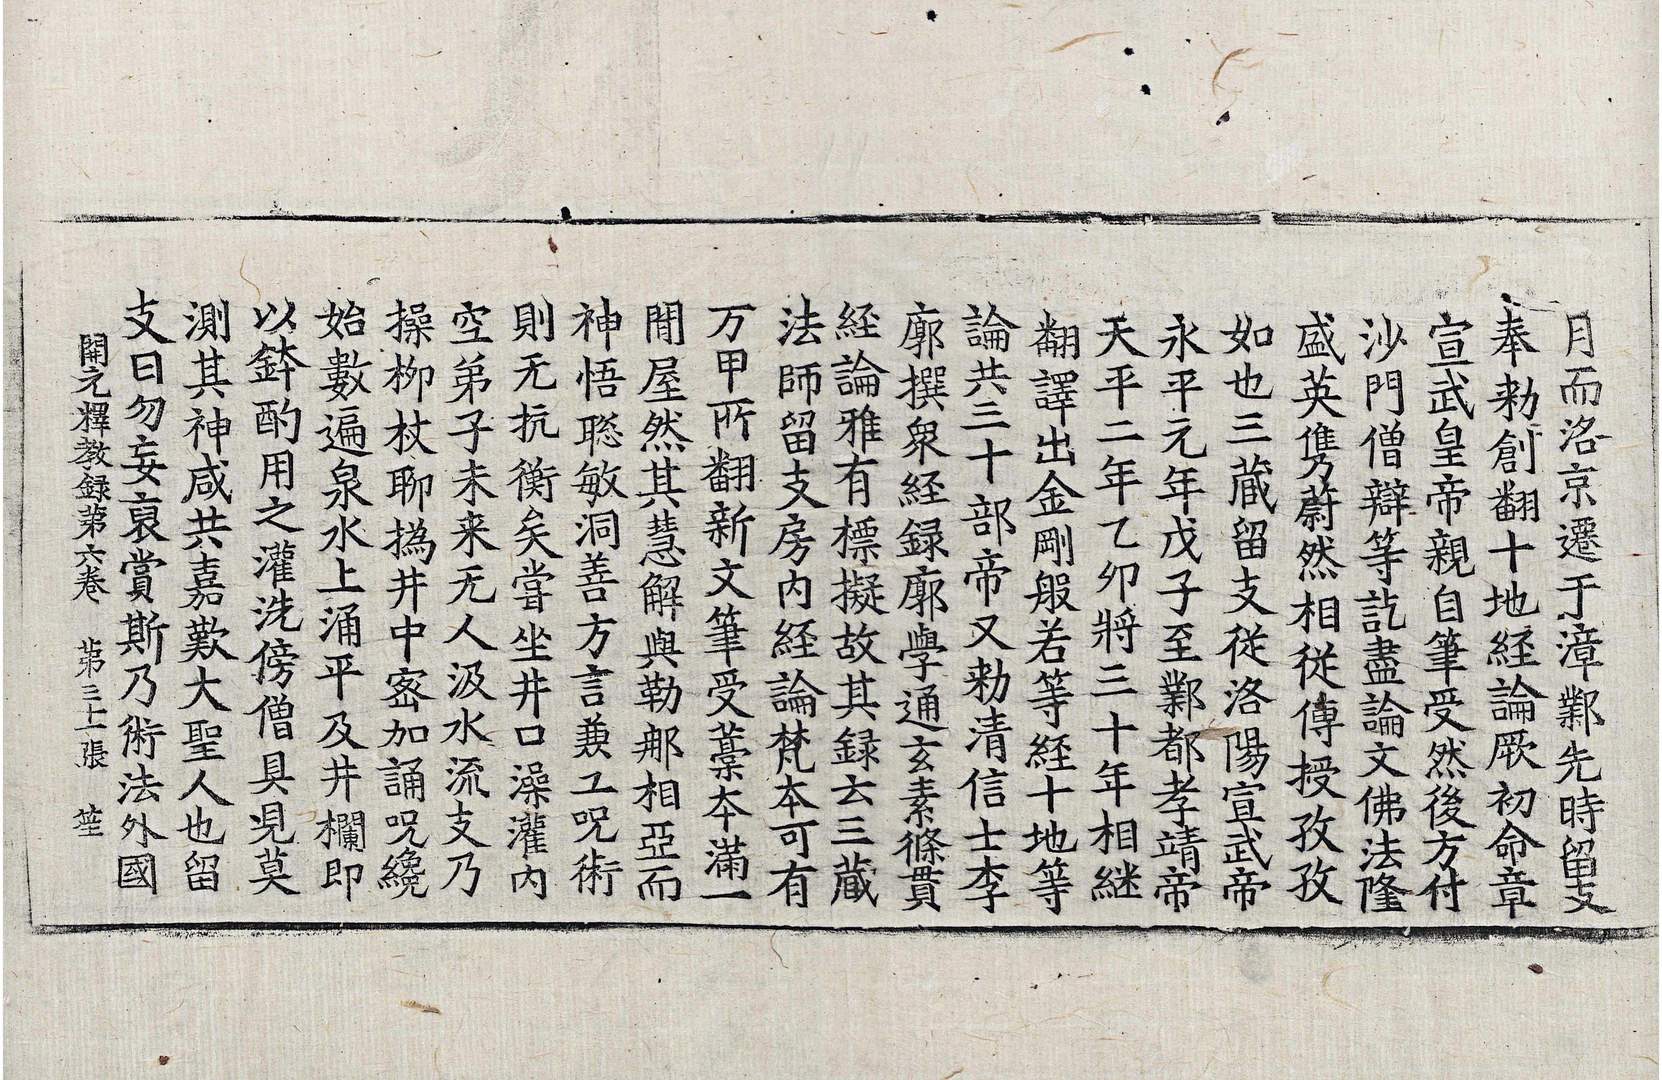 月而洛京遷于漳鄴先時留支
奉勅創翻十地経論厥初命章
宣武皇帝親自筆受然後方付
沙門僧辯等訖盡論文佛法隆
盛英儁蔚然相従傳授孜孜
如也三藏留支従洛陽宣武帝
永平元年戊子至鄴都孝靖帝
天平二年乙卯將三十年相継
翻譯出金剛般若等経十地等
論共三十部帝又勅清信士李
廓撰衆経録廓學通玄素條貫
経論雅有標擬故其録云三藏
法師留支房内経論梵本可有
万甲所翻新文筆受藁本滿一
間屋然其慧解與勒那相亞而
神悟聡敏洞善方言兼工呪術
則无抗衡矣甞坐井口澡灌内
空弟子未来无人汲水流支乃
操柳杖聊撝井中密加誦呪纔
始數遍泉水上涌平及井欄即
以鉢酌用之灌洗傍僧具見莫
測其神咸共嘉歎大聖人也留
支曰勿妄裒賞斯乃術法外國
開元釋教録第六卷　第三十張　筵